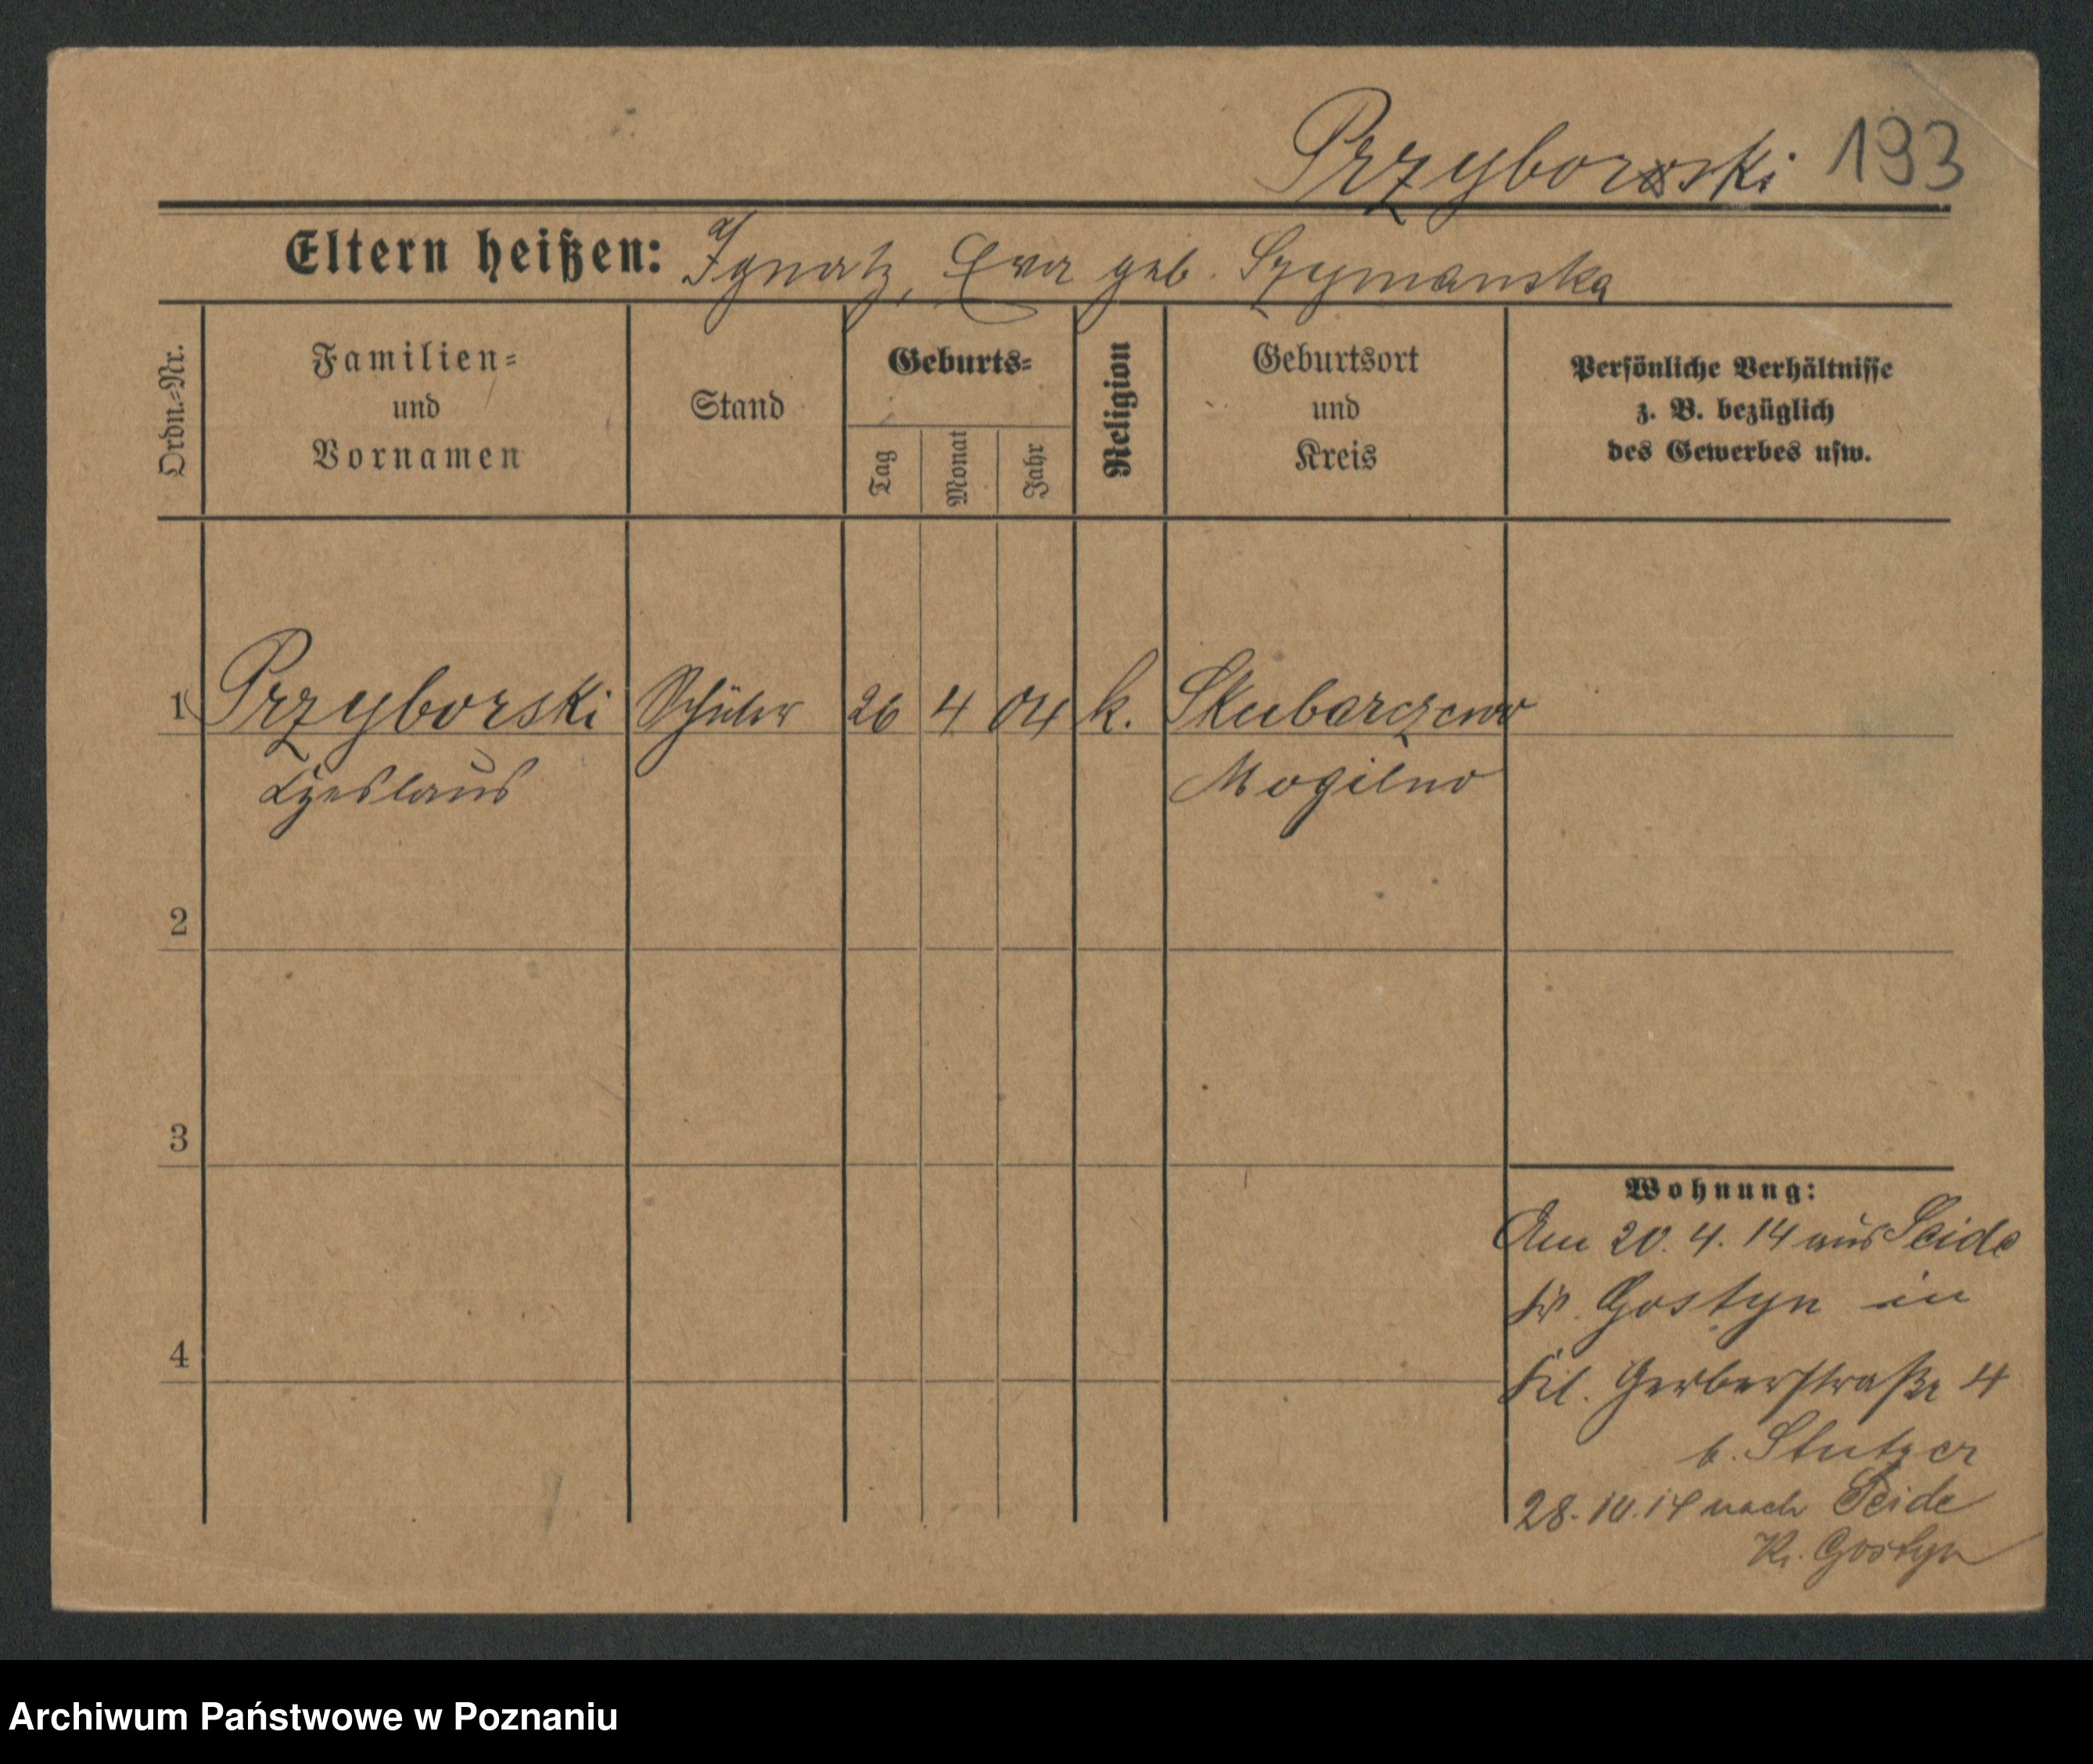 Przyborski 193
Eltern heißen: Ignatz, Eva geb. Szymanska
Ordn.=Nr.
Familien=
und
Vornamen
Stand
Geburts=
Tag
Monat
Jahr
Religion
Geburtsort
und
Kreis
Persönliche Verhältnisse
z. B. bezüglich
des Gewerbes usw.
1 Przyborski Schüler 26 4 04 k. Skubarczewo
Czeslaus Mogilno
2
3
4
Wohnung:
Am 20. 4. 14 aus Seide
Kr. Gostyn in
Kl. Gerberstraße 4
b. Stutzer
28. 10. 14 nach Seide
Kr. Gostyn
Archiwum Państwowe w Poznaniu